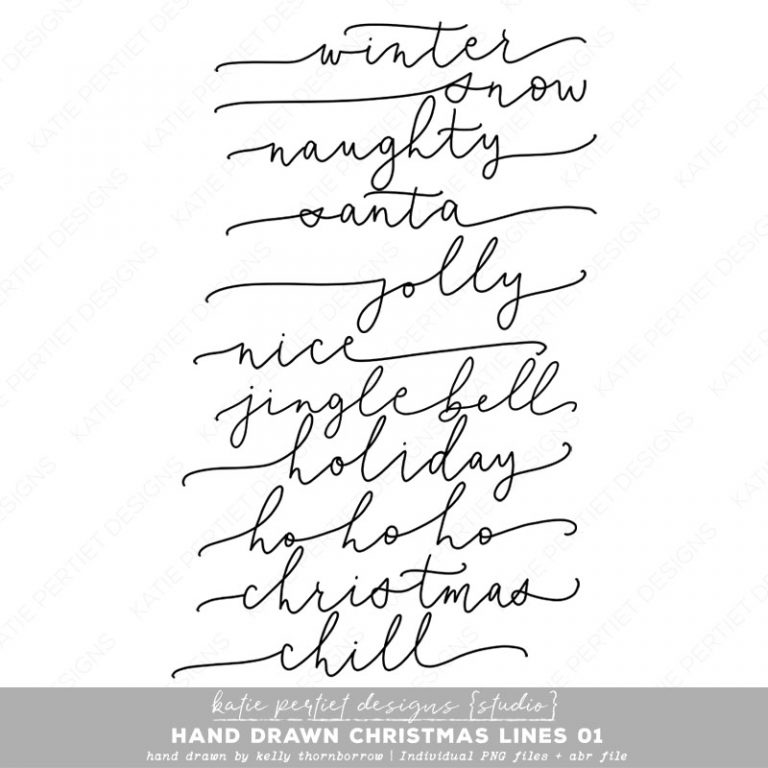 winter
snow
naughty
santa
jolly
nice
jingle bell
holiday
ho ho ho
christmas
chill
katie pertiet designs {studio}
HAND DRAWN CHRISTMAS LINES 01
hand drawn by kelly thornborrow | Individual PNG files + abr file
KATIE PERTIET DESIGNS